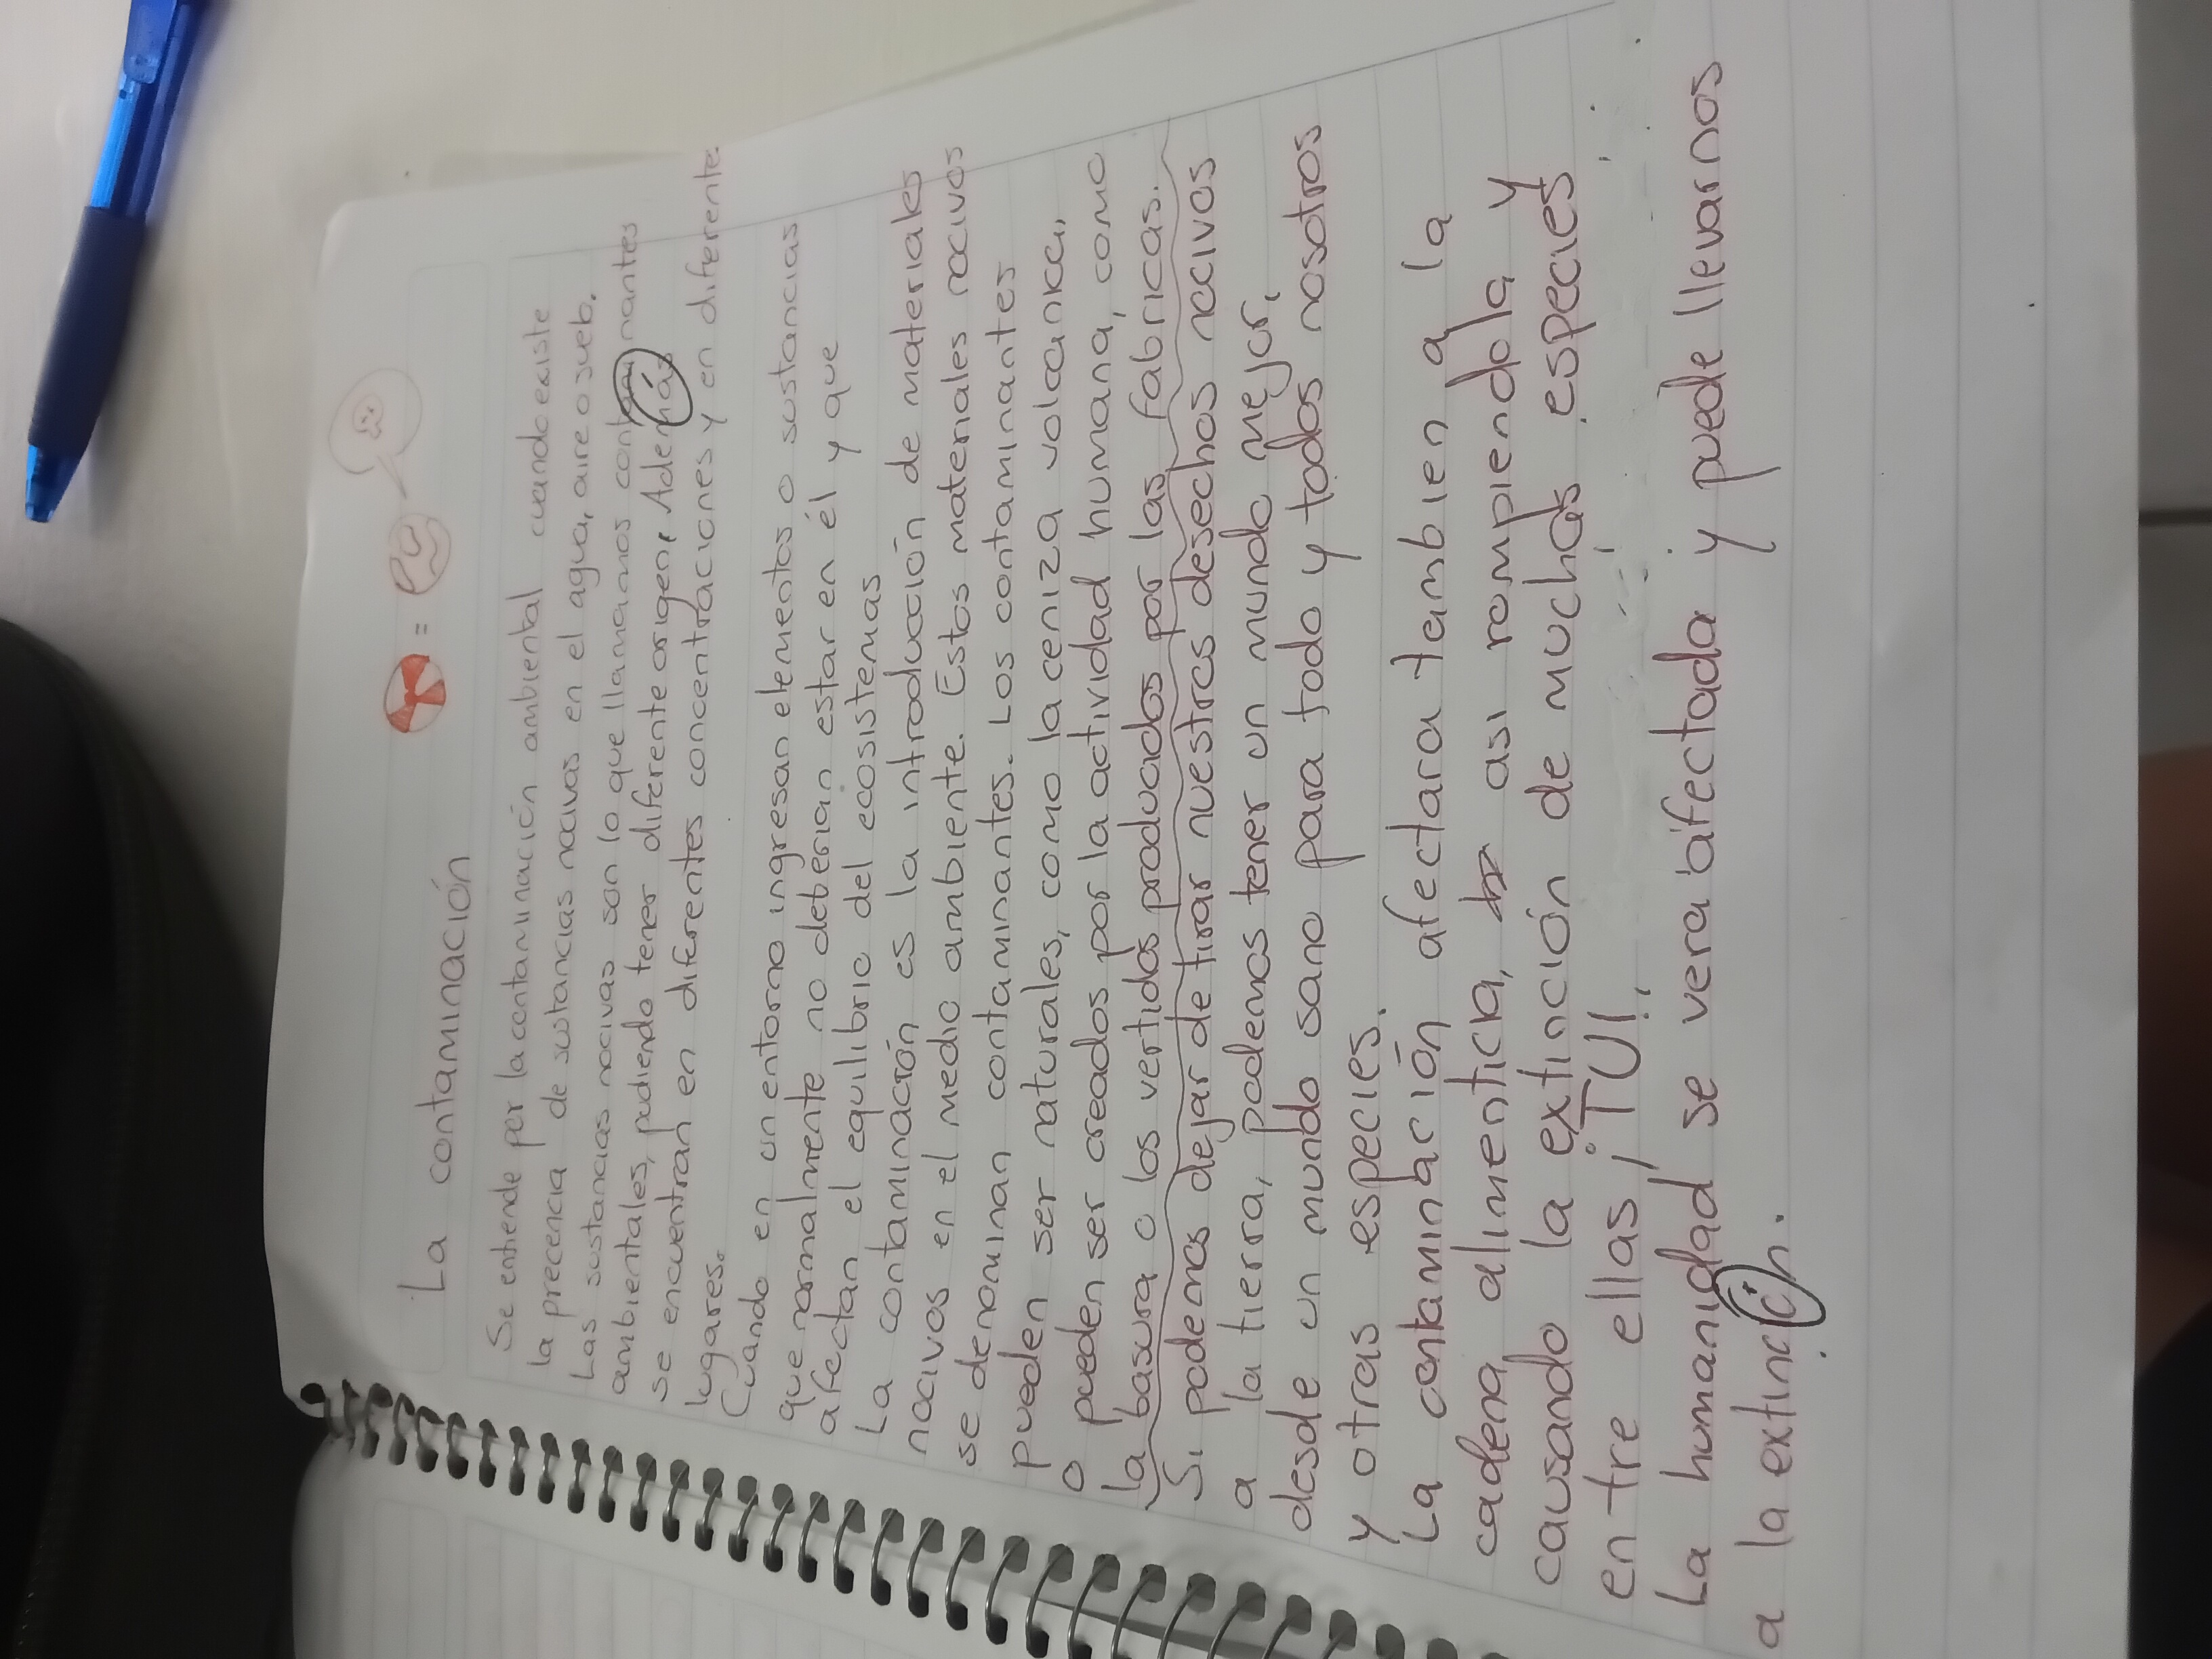 La contaminación
Se entiende por la contaminación ambiental cuando existe
la precencia de sustancias nocivas en el agua, aire o suelo.
Las sustancias nocivas son lo que llamamos nantes
ambientales, pudiendo tener diferente origen, Además
se encuentran en diferentes concentraciones y en diferente
lugares.
Cuando en un entorno ingresan elementos o sustancias
que normalmente no deberian estar en él y que
afectan el equilibrio del ecosistemas
La contaminación es la introducción de materiales
nocivos en el medio ambiente. Estos materiales nocivos
se denominan contaminantes. Los contaminantes
pueden ser naturales, como la ceniza volcanica,
o pueden ser creados por la actividad humana, como
la basura o los vertidos producidos por las fabricas.
Si podemos dejar de tirar nuestros desechos nocivos
a la tierra, podemos tener un mundo mejor,
desde un mundo sano para todo y todos nosotros
y otras especies.
La contaminación afectara tambien a la
cadena alimenticia, asi rompiendola y
causando la extinción de muchas especies
entre ellas ¡TU!,
La humanidad se vera afectada y puede llevarnos
a la extinción.